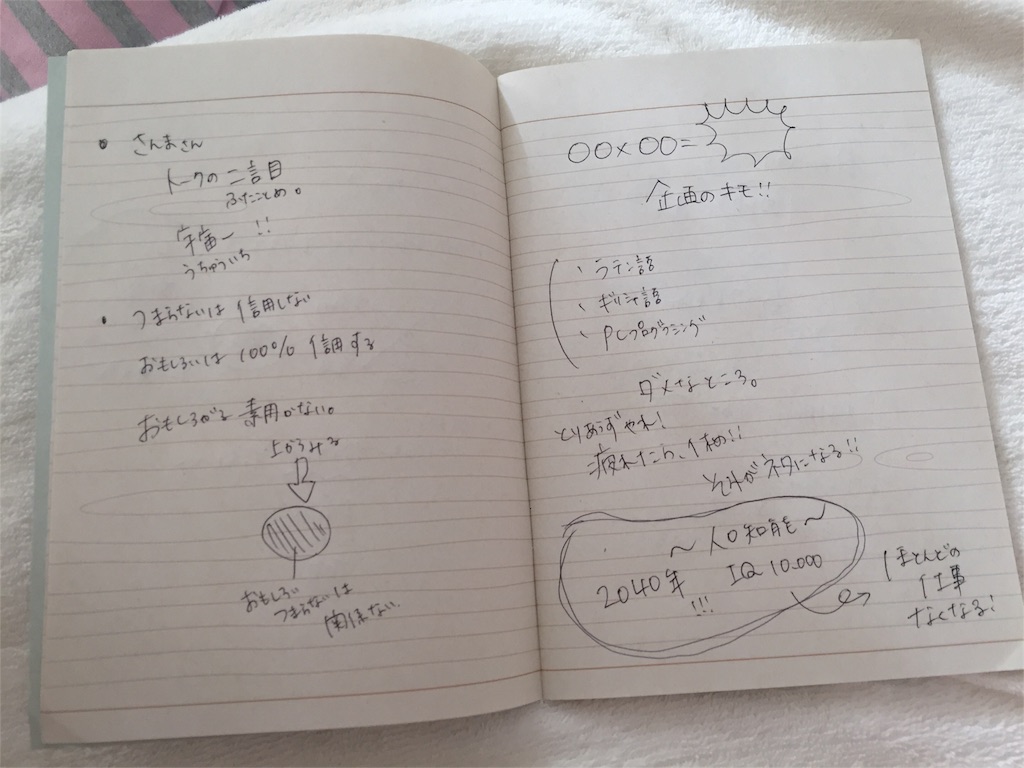 ・さんまさん
トークの二言目
ふたことめ。
宇宙一 !!
うちゅういち
・つまらないは信用しない
おもしろいは100%信用する
おもしろがる 費用がない。
上からみる
おもしろい
つまらないは
関係ない.
〇〇×〇〇=
企画のキモ!!
、ラテン語
、ギリシャ語
、PCプログラミング
ダメなところ。
とりあえずやれ!
疲れたら、休め!!
それがネタになる!!
〜人口知能〜
2040年 IQ 10.000
!!!
ほとんどの
仕事
なくなる!